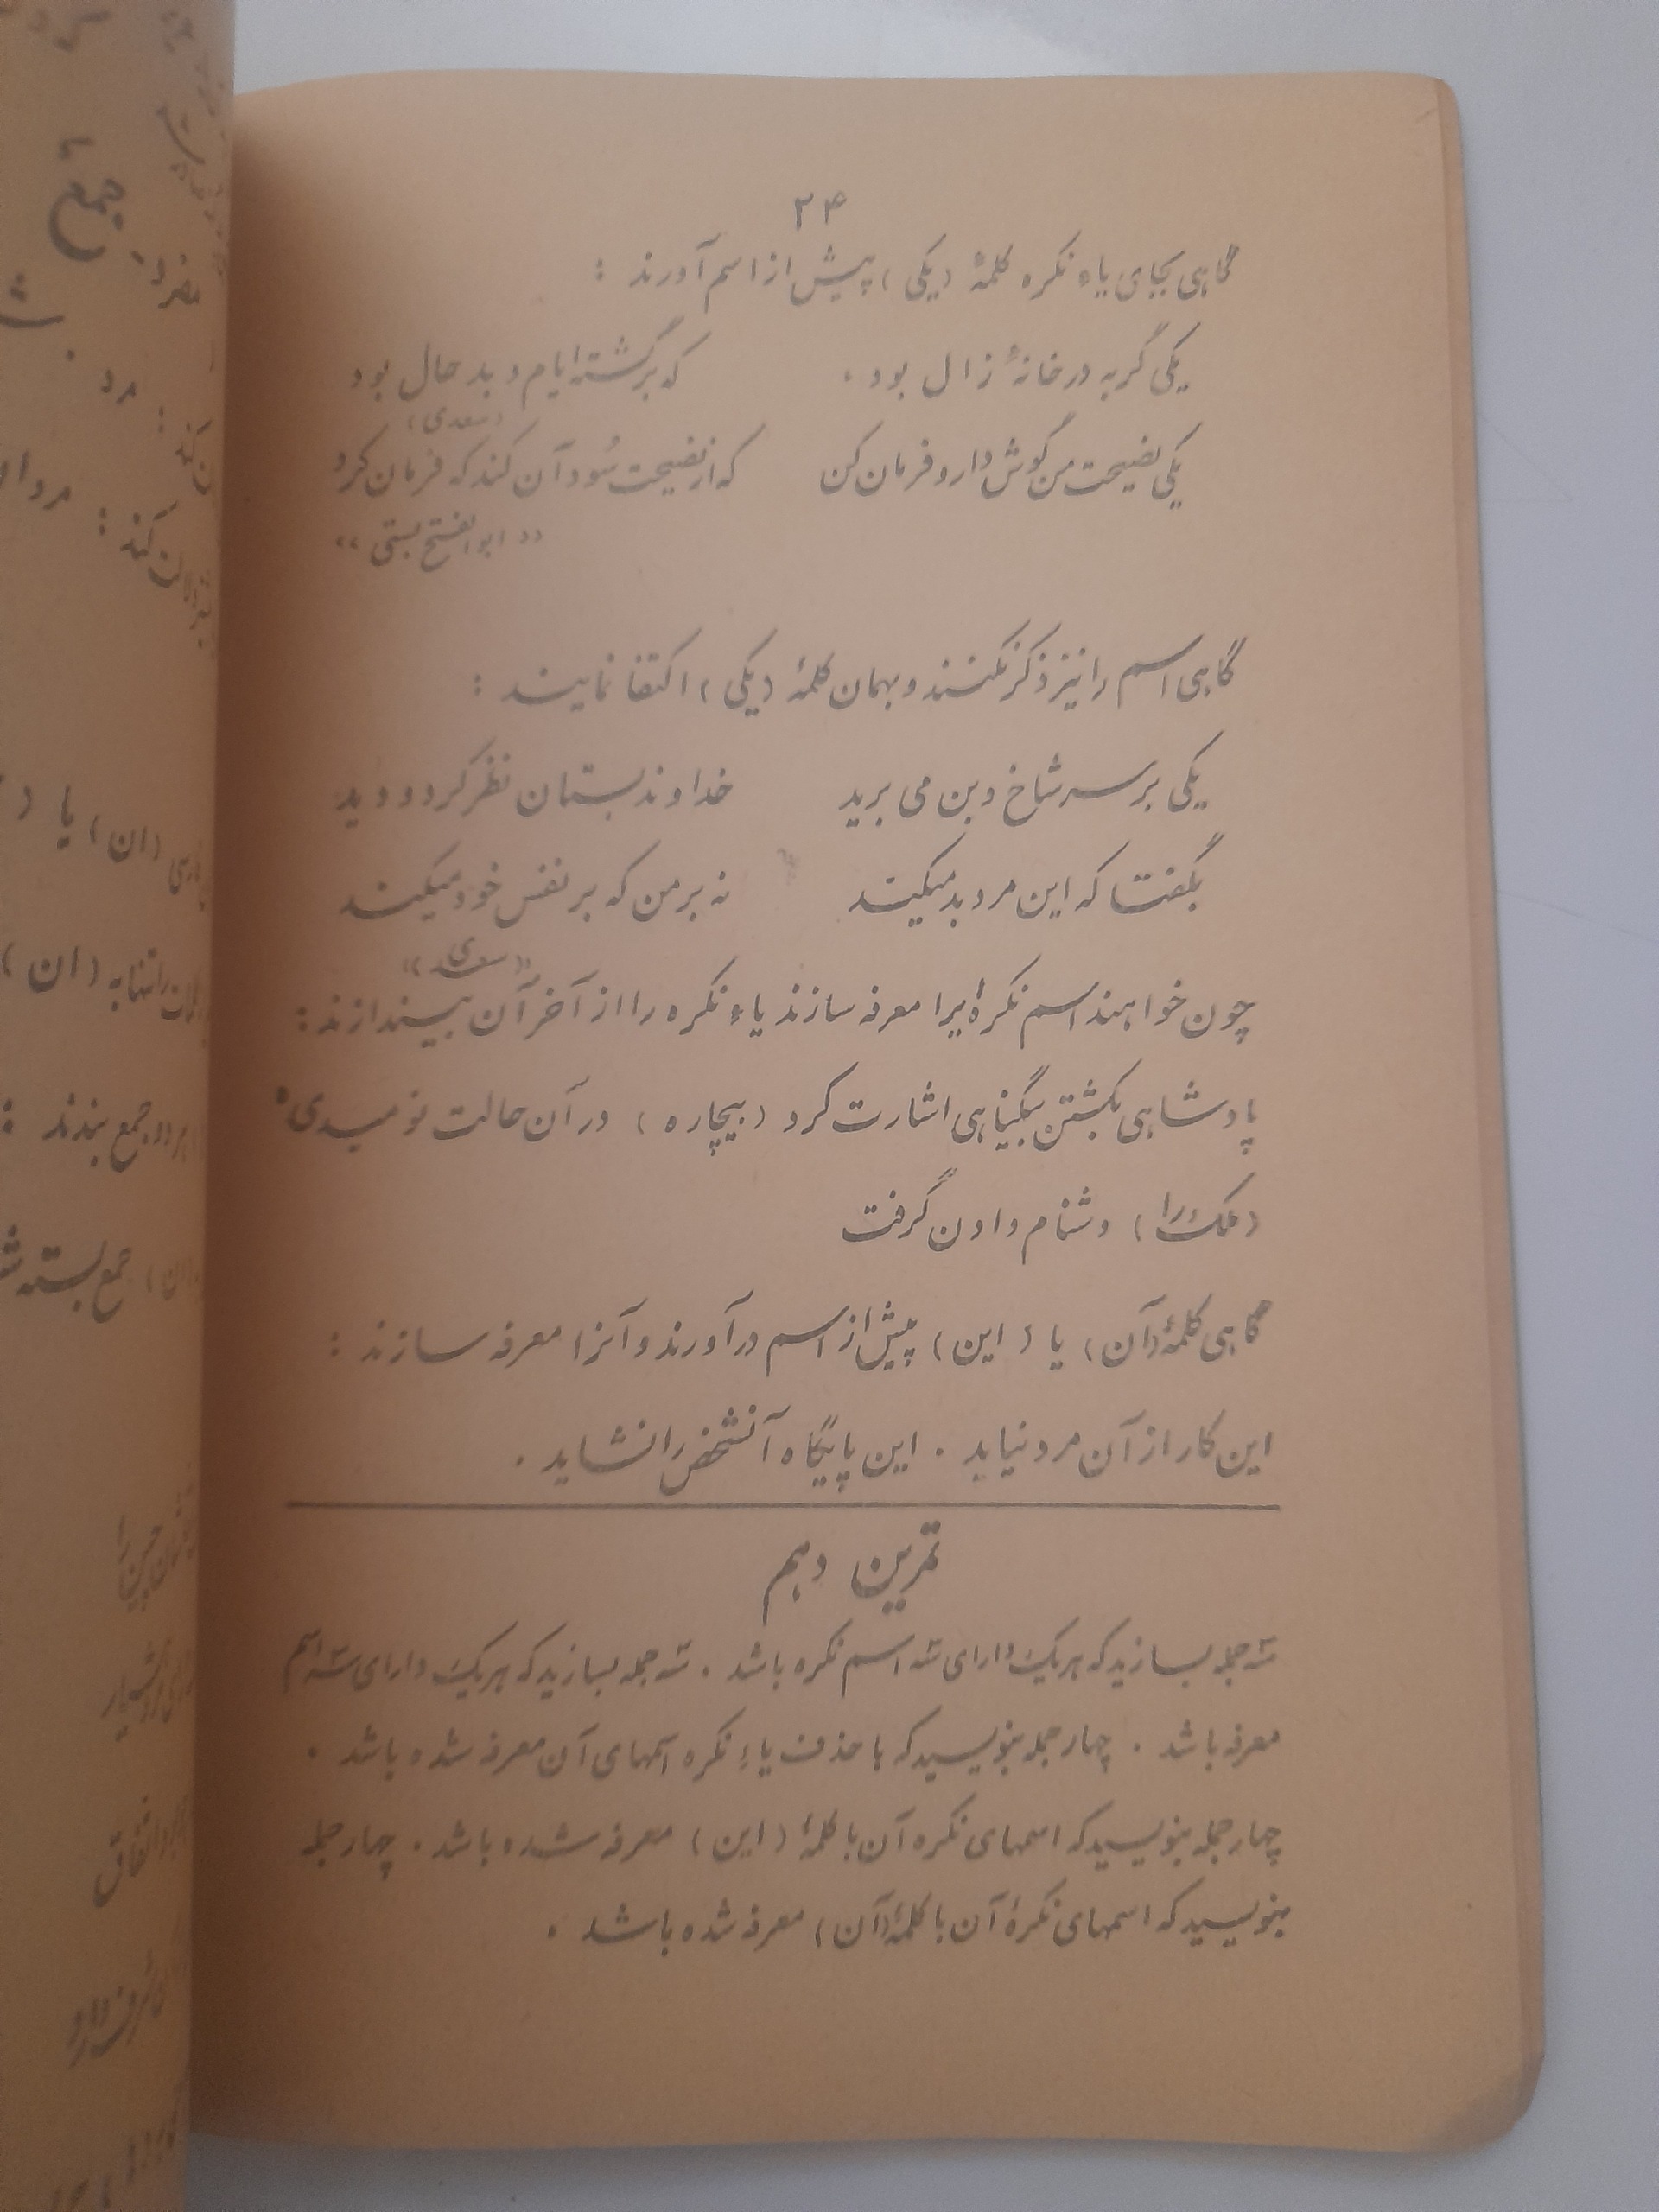 ۳۴
گاهی بجای یاء نکره کلمهٔ (یکی) پیش از اسم آورند :
یکی گربه در خانهٔ زال بود . که برگشته ایام و بد حال بود
(سعدی)
یکی نصیحت من گوش دار و فرمان کن که از نصیحت سُود آن کند که فرمان کرد
«ابوالفتح بستی»
گاهی اسم را نیز ذکر نکنند و بهمان کلمهٔ (یکی) اکتفا نمایند :
یکی بر سر شاخ و بن می برید خداوند بستان نظر کرد و دید
بگفتا که این مرد بد میکند نه بر من که بر نفس خود میکند
«سعدی»
چون خواهند اسم نکرهٔ ایرا معرفه سازند یاءِ نکره را از آخر آن بیندازند :
پادشاهی بکشتن بیگناهی اشارت کرد (بیچاره) در آن حالت نومیدی
(ملک را) دشنام دادن گرفت
گاهی کلمهٔ (آن) یا (این) پیش از اسم در آورند و آنرا معرفه سازند :
این کار از آن مرد نیاید . این پایگاه آنشخص را نشاید .
تمرین دهم
سه جمله بسازید که هریک دارای سه اسم نکره باشد . سه جمله بسازید که هریک دارای سه اسم
معرفه باشد . چهار جمله بنویسید که با حذف یاءِ نکره اسمهای آن معرفه شده باشد .
چهار جمله بنویسید که اسمهای نکره آن با کلمهٔ (این) معرفه شده باشد . چهار جمله
بنویسید که اسمهای نکرهٔ آن با کلمهٔ (آن) معرفه شده باشد .
جمع
مفرد
(ان) یا (
(ان)
هر دو جمع بندند :
جمع بسته